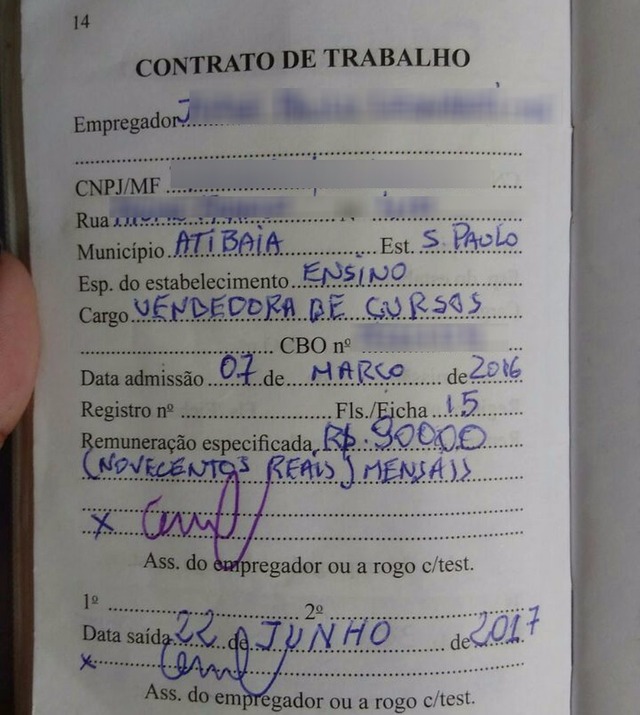 14
CONTRATO DE TRABALHO
Empregador J
CNPJ/MF
Rua
Município ATIBAIA Est. S. PAULO
Esp. do estabelecimento ENSINO
Cargo VENDEDORA DE CURSOS
CBO nº
Data admissão 07 de MARCO de 2016
Registro nº Fls./Ficha 15
Remuneração especificada R$. 90000
(NOVECENTOS REAIS) MENSAIS
x
Ass. do empregador ou a rogo c/test.
1º 2º
Data saída 22 de JUNHO de 2017
x
Ass. do empregador ou a rogo c/test.